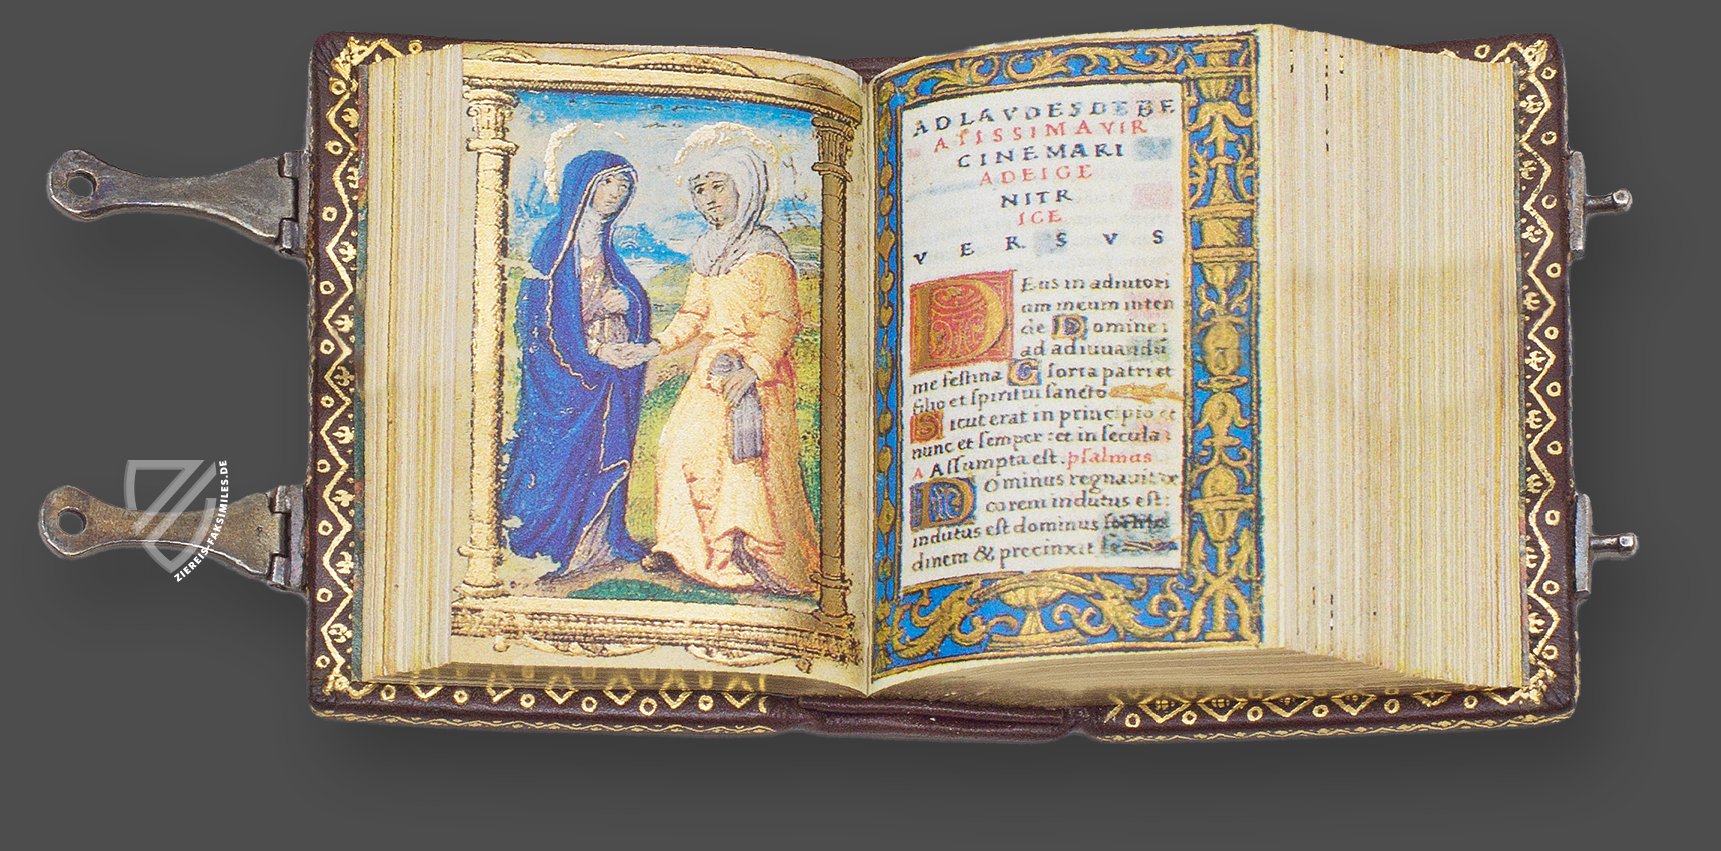 ADLAVDESDEBE
ATISSIMAVIR
CINEMARI
ADEIGE
NITR
ICE
VERSVS
DEus in adiutori
um meum inten
de Domine:
ad adiuuandũ
me festina Gloria patri et
filio et spiritui sancto
Sicut erat in principio et
nunc et semper: et in secula:
A Assumpta est. psalmus
DOminus regnauit de
corem indutus est:
indutus est dominus fortitu
dinem & precinxit se
ZIEREIS-FAKSIMILES.DE